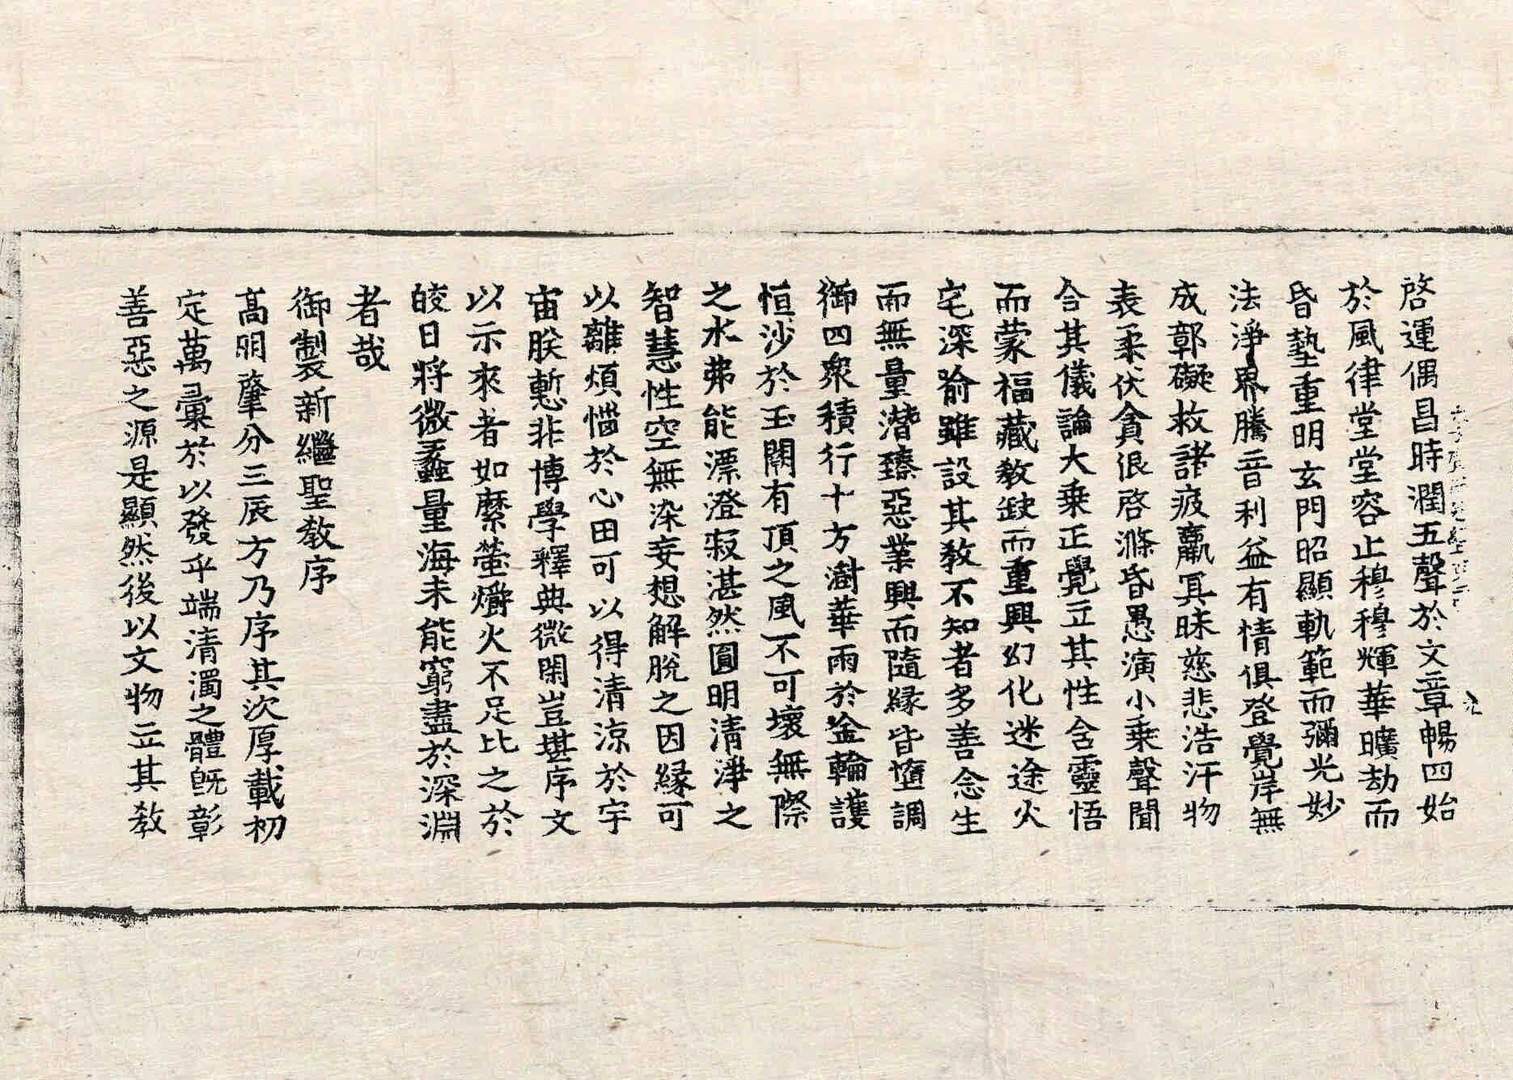 啓運偶昌時潤五聲於文章暢四始
於風律堂堂容止穆穆輝華曠劫而
昏墊重明玄門昭顯軌範而彌光妙
法淨界騰音利益有情俱登覺岸無
成郭礙救諸疲羸冥昧慈悲浩汗物
表柔伏貪佷啓滌昏愚演小乗聲聞
合其儀論大乗正覺立其性含靈悟
而蒙福藏教缺而重興幻化迷途火
宅深喻雖設其教不知者多善念生
而無量潛臻惡業興而隨縁皆墮調
御四衆積行十方澍華雨於金輪護
恒沙於玉闕有頂之風不可壞無際
之水弗能漂澄寂湛然圓明清淨之
智慧性空無染妄想解脫之因縁可
以離煩惱於心田可以得清涼於宇
宙朕慙非博學釋典微閑豈堪序文
以示來者如縻螢爝火不足比之於
皎日將微蠡量海未能窮盡於深淵
者哉
御製新繼聖教序
高明肇分三辰方乃序其次厚載初
定萬彙於以發乎端清濁之體旣彰
善惡之源是顯然後以文物立其教